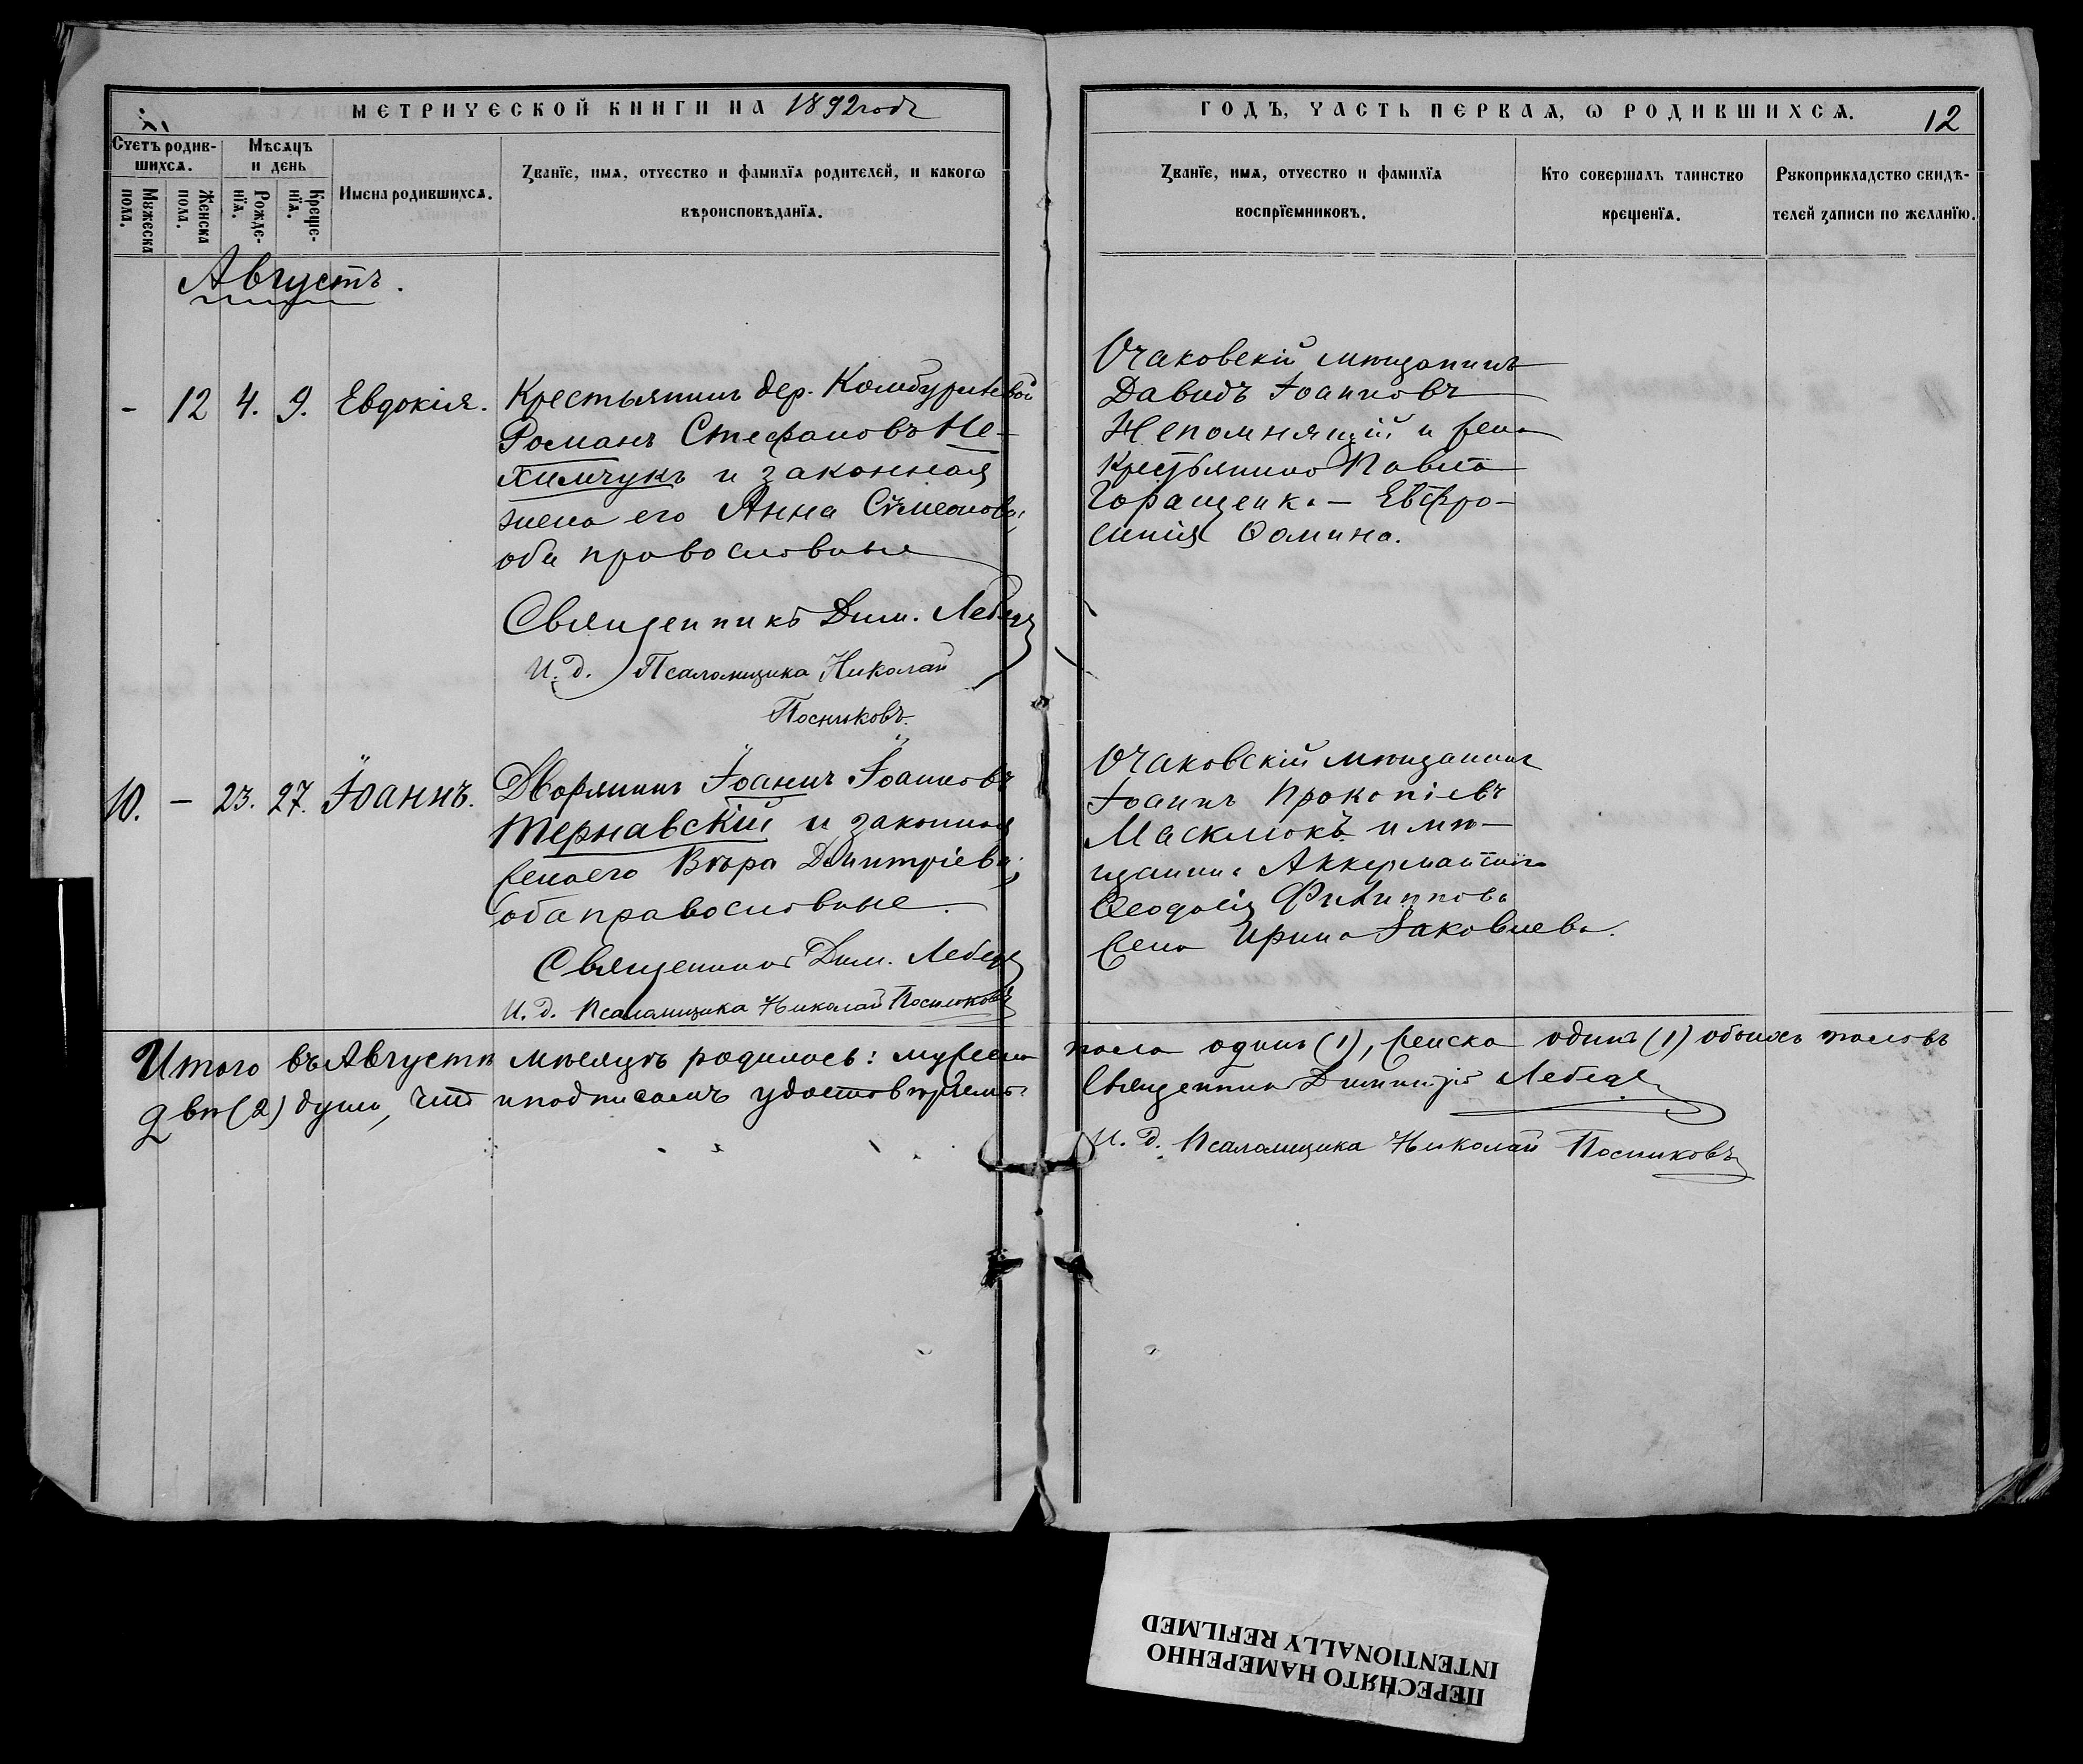 МЕТРИЧЕСКОЙ КНИГИ НА 1892 годъ
ГОДЪ, ЧАСТЬ ПЕРВАЯ, Ѡ РОДИВШИХСѦ.
12
Счетъ родив-
шихсѧ.
Мѣсѧцъ
и день
Мꙋжеска
пола.
Женска
пола.
Рожде-
нїѧ.
Креще-
нїѧ.
Имена родившихсѧ.
Званїе, имѧ, отчество и фамилїѧ родителей, и какогѡ
вѣроисповѣданїѧ.
Званїе, имѧ, отчество и фамилїѧ
воспрїемниковъ.
Кто совершалъ таинство
крещенїѧ.
Рꙋкоприкладство свидѣ-
телей записи по желанїю.
Августъ.
- 12 4. 9. Евдокія.
Крестьянинъ дер. Комбуриевой
Романъ Стефановъ Не-
химчукъ и законная
жена его Анна Сѵмеонова;
оба православные
Священникъ Дим. Лебедь
И. д. Псаломщика Николай
Посниковъ.
Очаковскій мѣщанинъ
Давидъ Іоанновъ
Непомнящій и жена
Крестьянина Павла
Горащенка – Евфро-
синія Ѳомина.
10. – 23. 27. Іоаннъ.
Дворянинъ Іоаннъ Іоанновъ
Тернавскій и законная
жена его Вѣра Димитріева;
оба православные.
Священникъ Дим. Лебедь
И. д. Псаломщика Николай Посниковъ
Очаковскій мѣщанинъ
Іоаннъ Прокопіевъ
Масклюкъ и мѣ-
щанина Аккерманскаго
Ѳеодосія Филиппова
жена Ирина Іаковлева.
Итого въ Августѣ мѣсяцѣ родилось: мужеска пола одинъ (1), женска одинъ (1) обоихъ половъ
двѣ (2) души, что и подписомъ удостовѣряемъ.
Священникъ Димитрій Лебедь
И. д. Псаломщика Николай Посниковъ
ПЕРЕСНЯТО НАМЕРЕННО
INTENTIONALLY REFILMED